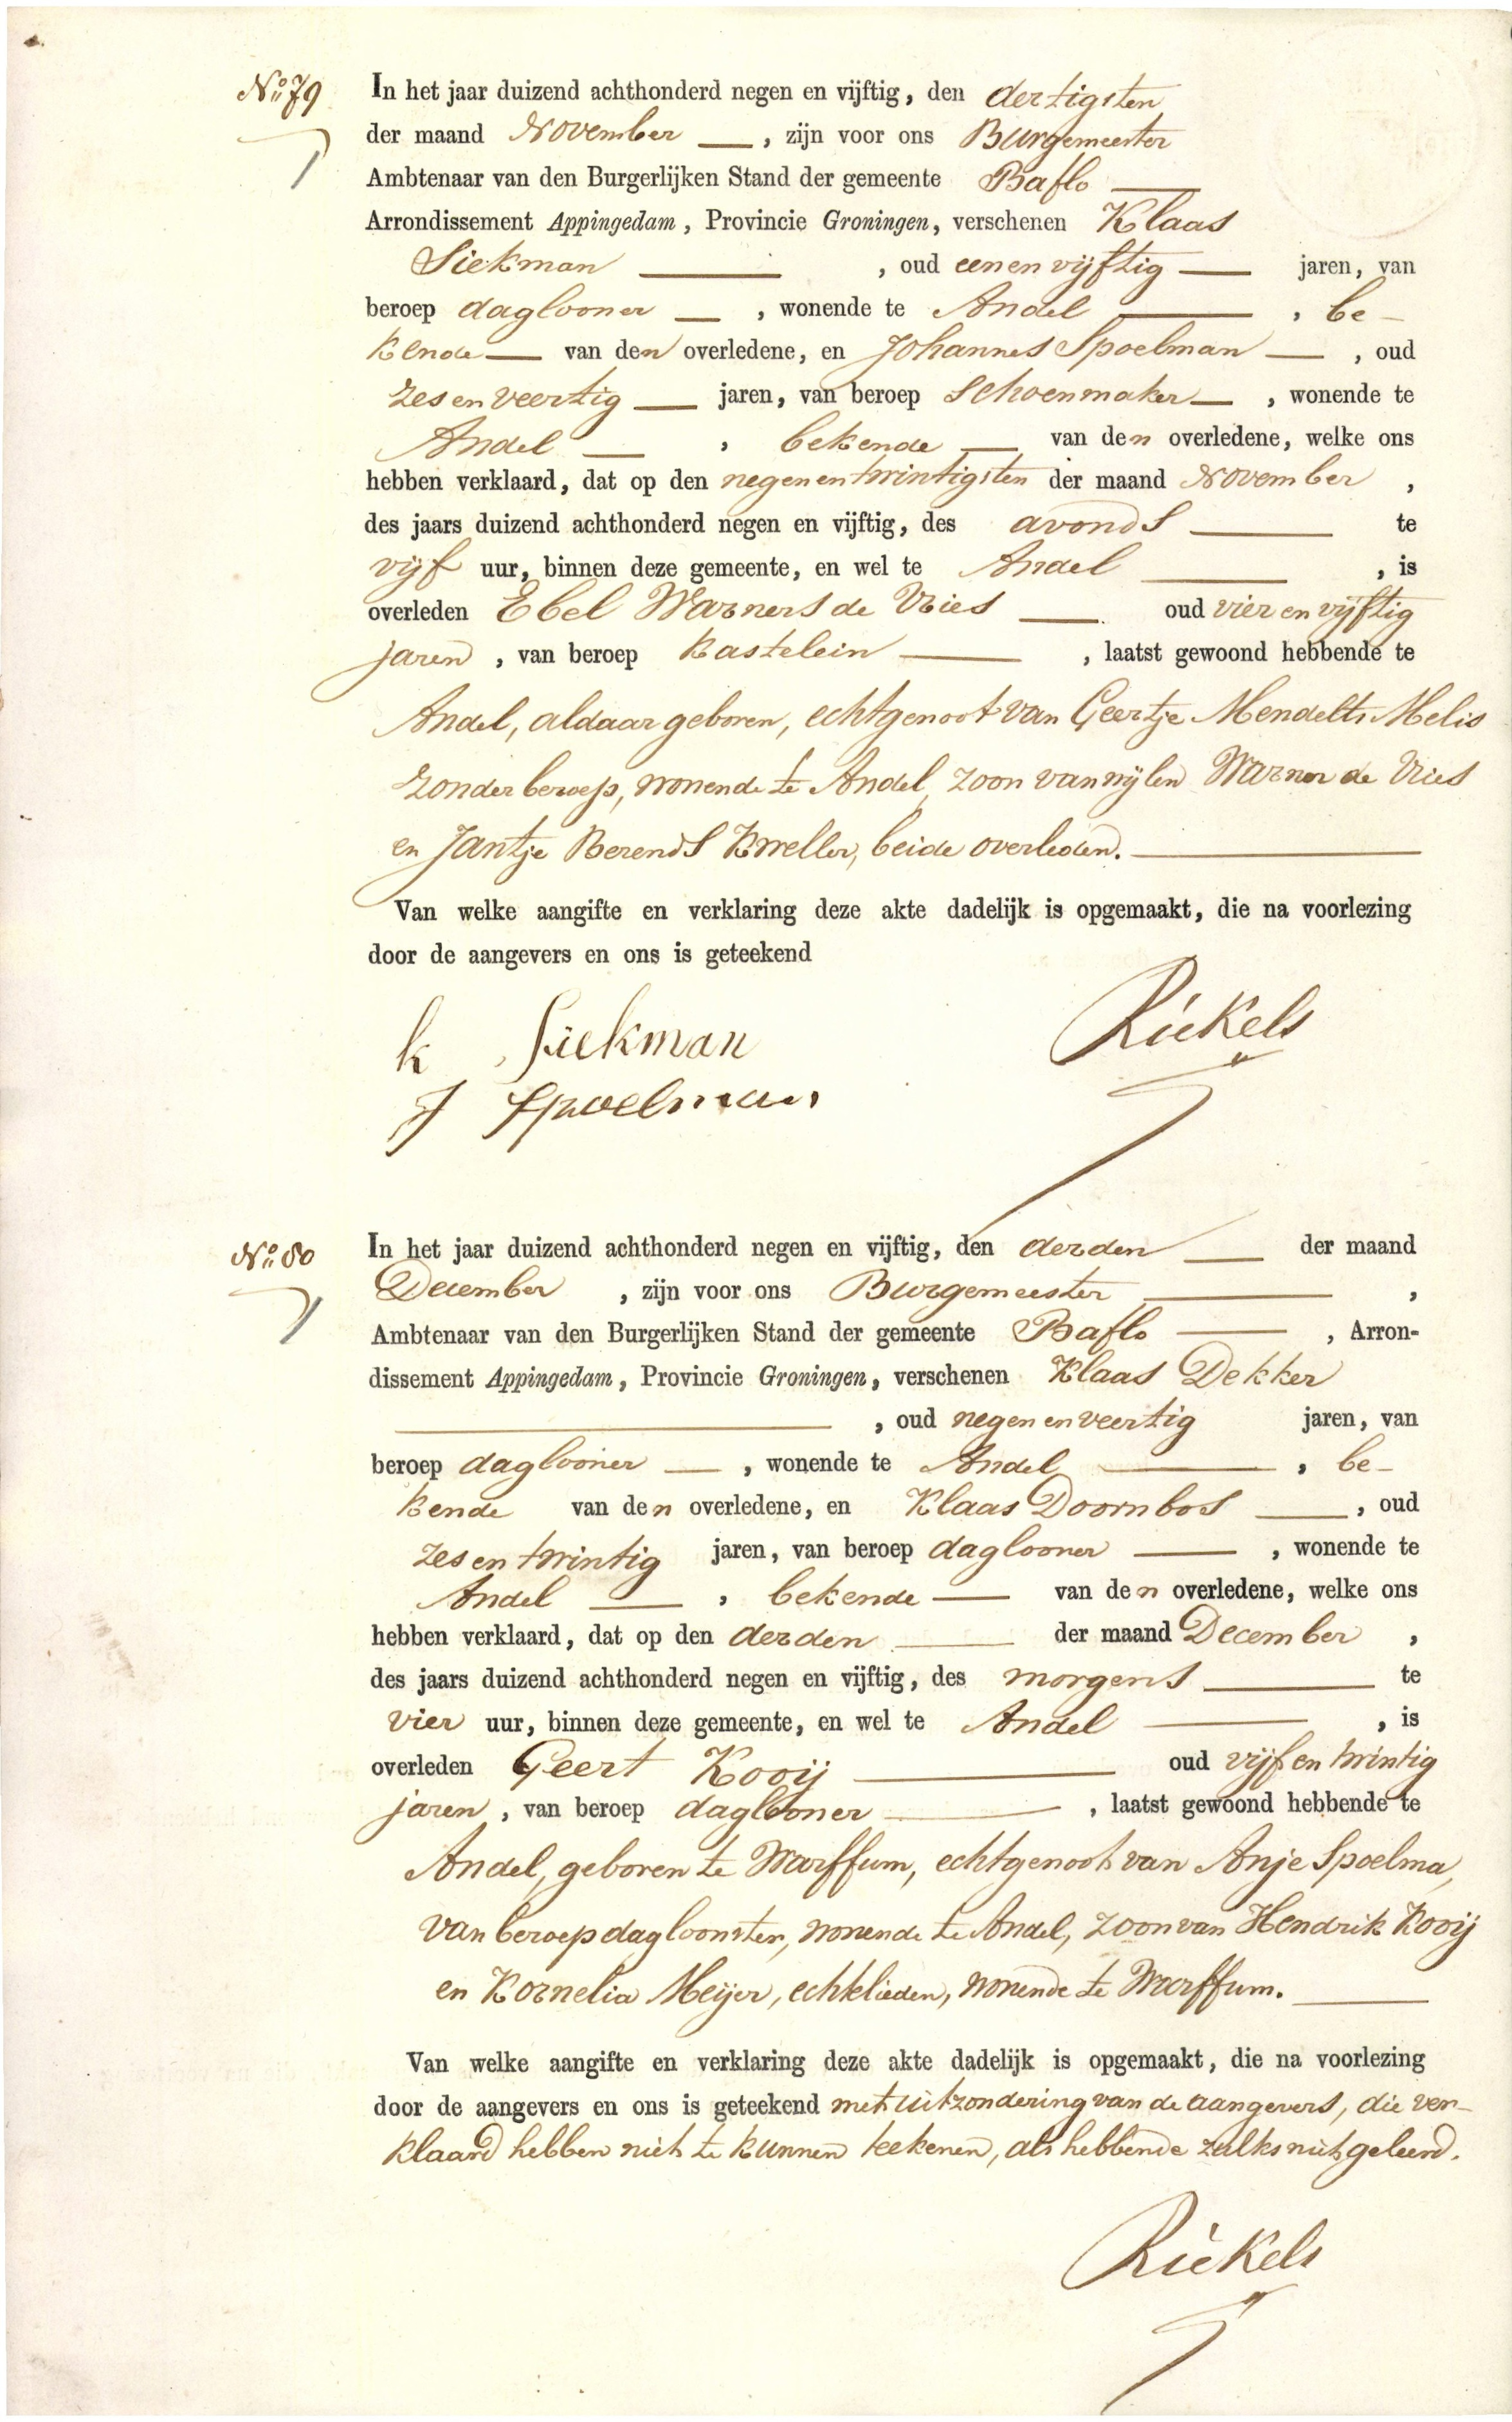 No 79
In het jaar duizend achthonderd negen en vijftig, den dertigsten
der maand November —, zijn voor ons Burgemeester
Ambtenaar van den Burgerlijken Stand der gemeente Baflo —
Arrondissement Appingedam, Provincie Groningen, verschenen Klaas
Siekman —, oud een en vijftig — jaren, van
beroep daglooner —, wonende te Andel —, be-
kende — van den overledene, en Johannes Spoelman —, oud
zes en veertig — jaren, van beroep schoenmaker —, wonende te
Andel —, bekende — van den overledene, welke ons
hebben verklaard, dat op den negen en twintigsten der maand November,
des jaars duizend achthonderd negen en vijftig, des avonds — te
vijf uur, binnen deze gemeente, en wel te Andel —, is
overleden Ebel Warners de Vries — oud vier en vijftig
jaren, van beroep kastelein —, laatst gewoond hebbende te
Andel, aldaar geboren, echtgenoot van Geertje Mendelts Melis
zonder beroep, wonende te Andel, zoon van wijlen Warner de Vries
en Jantje Berends Kweller, beide overleden. —
Van welke aangifte en verklaring deze akte dadelijk is opgemaakt, die na voorlezing
door de aangevers en ons is geteekend
k Siekman
Riekels
J Spoelman
No 80
In het jaar duizend achthonderd negen en vijftig, den derden — der maand
December, zijn voor ons Burgemeester —,
Ambtenaar van den Burgerlijken Stand der gemeente Baflo —, Arron-
dissement Appingedam, Provincie Groningen, verschenen Klaas Dekker
—, oud negen en veertig jaren, van
beroep daglooner —, wonende te Andel —, be-
kende van den overledene, en Klaas Doornbos —, oud
zes en twintig jaren, van beroep daglooner —, wonende te
Andel —, bekende — van den overledene, welke ons
hebben verklaard, dat op den derden — der maand December,
des jaars duizend achthonderd negen en vijftig, des morgens — te
vier uur, binnen deze gemeente, en wel te Andel —, is
overleden Geert Kooij — oud vijf en twintig
jaren, van beroep daglooner —, laatst gewoond hebbende te
Andel, geboren te Warffum, echtgenoot van Anje Spoelma,
van beroep dagloonster, wonende te Andel, zoon van Hendrik Kooij
en Kornelia Meijer, echtelieden, wonende te Warffum. —
Van welke aangifte en verklaring deze akte dadelijk is opgemaakt, die na voorlezing
door de aangevers en ons is geteekend met uitzondering van de aangevers, die ver-
klaard hebben niet te kunnen teekenen, als hebbende zulks niet geleerd.
Riekels